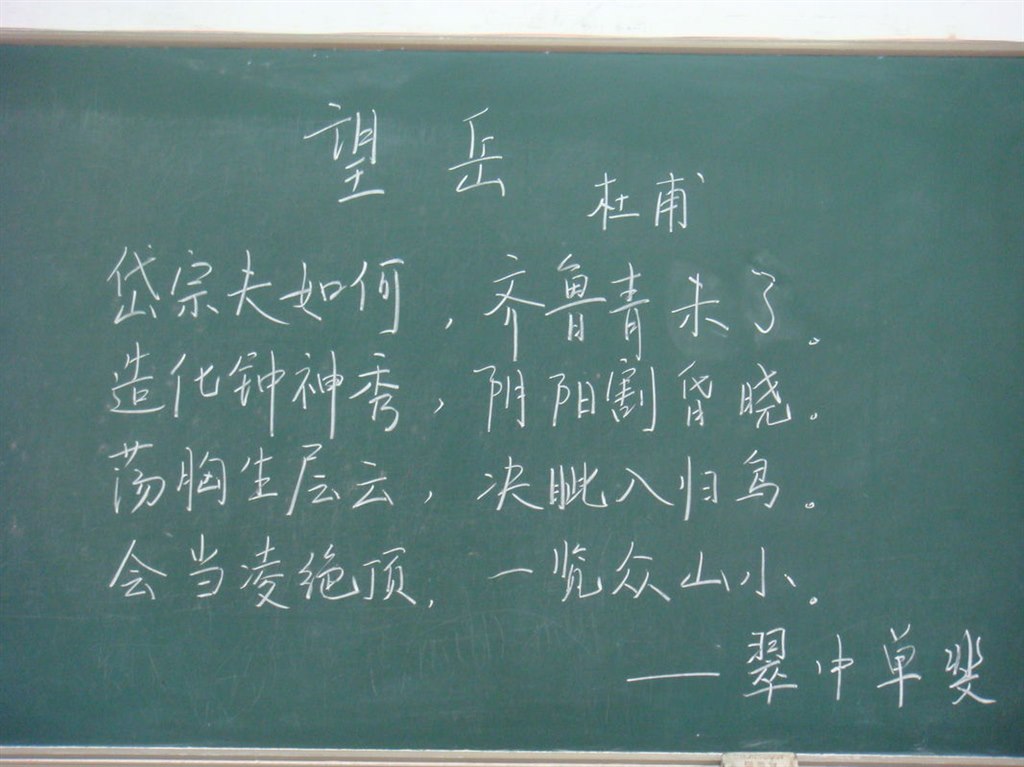 望岳
杜甫
岱宗夫如何，齐鲁青未了。
造化钟神秀，阴阳割昏晓。
荡胸生层云，决眦入归鸟。
会当凌绝顶，一览众山小。
——翠中单斐